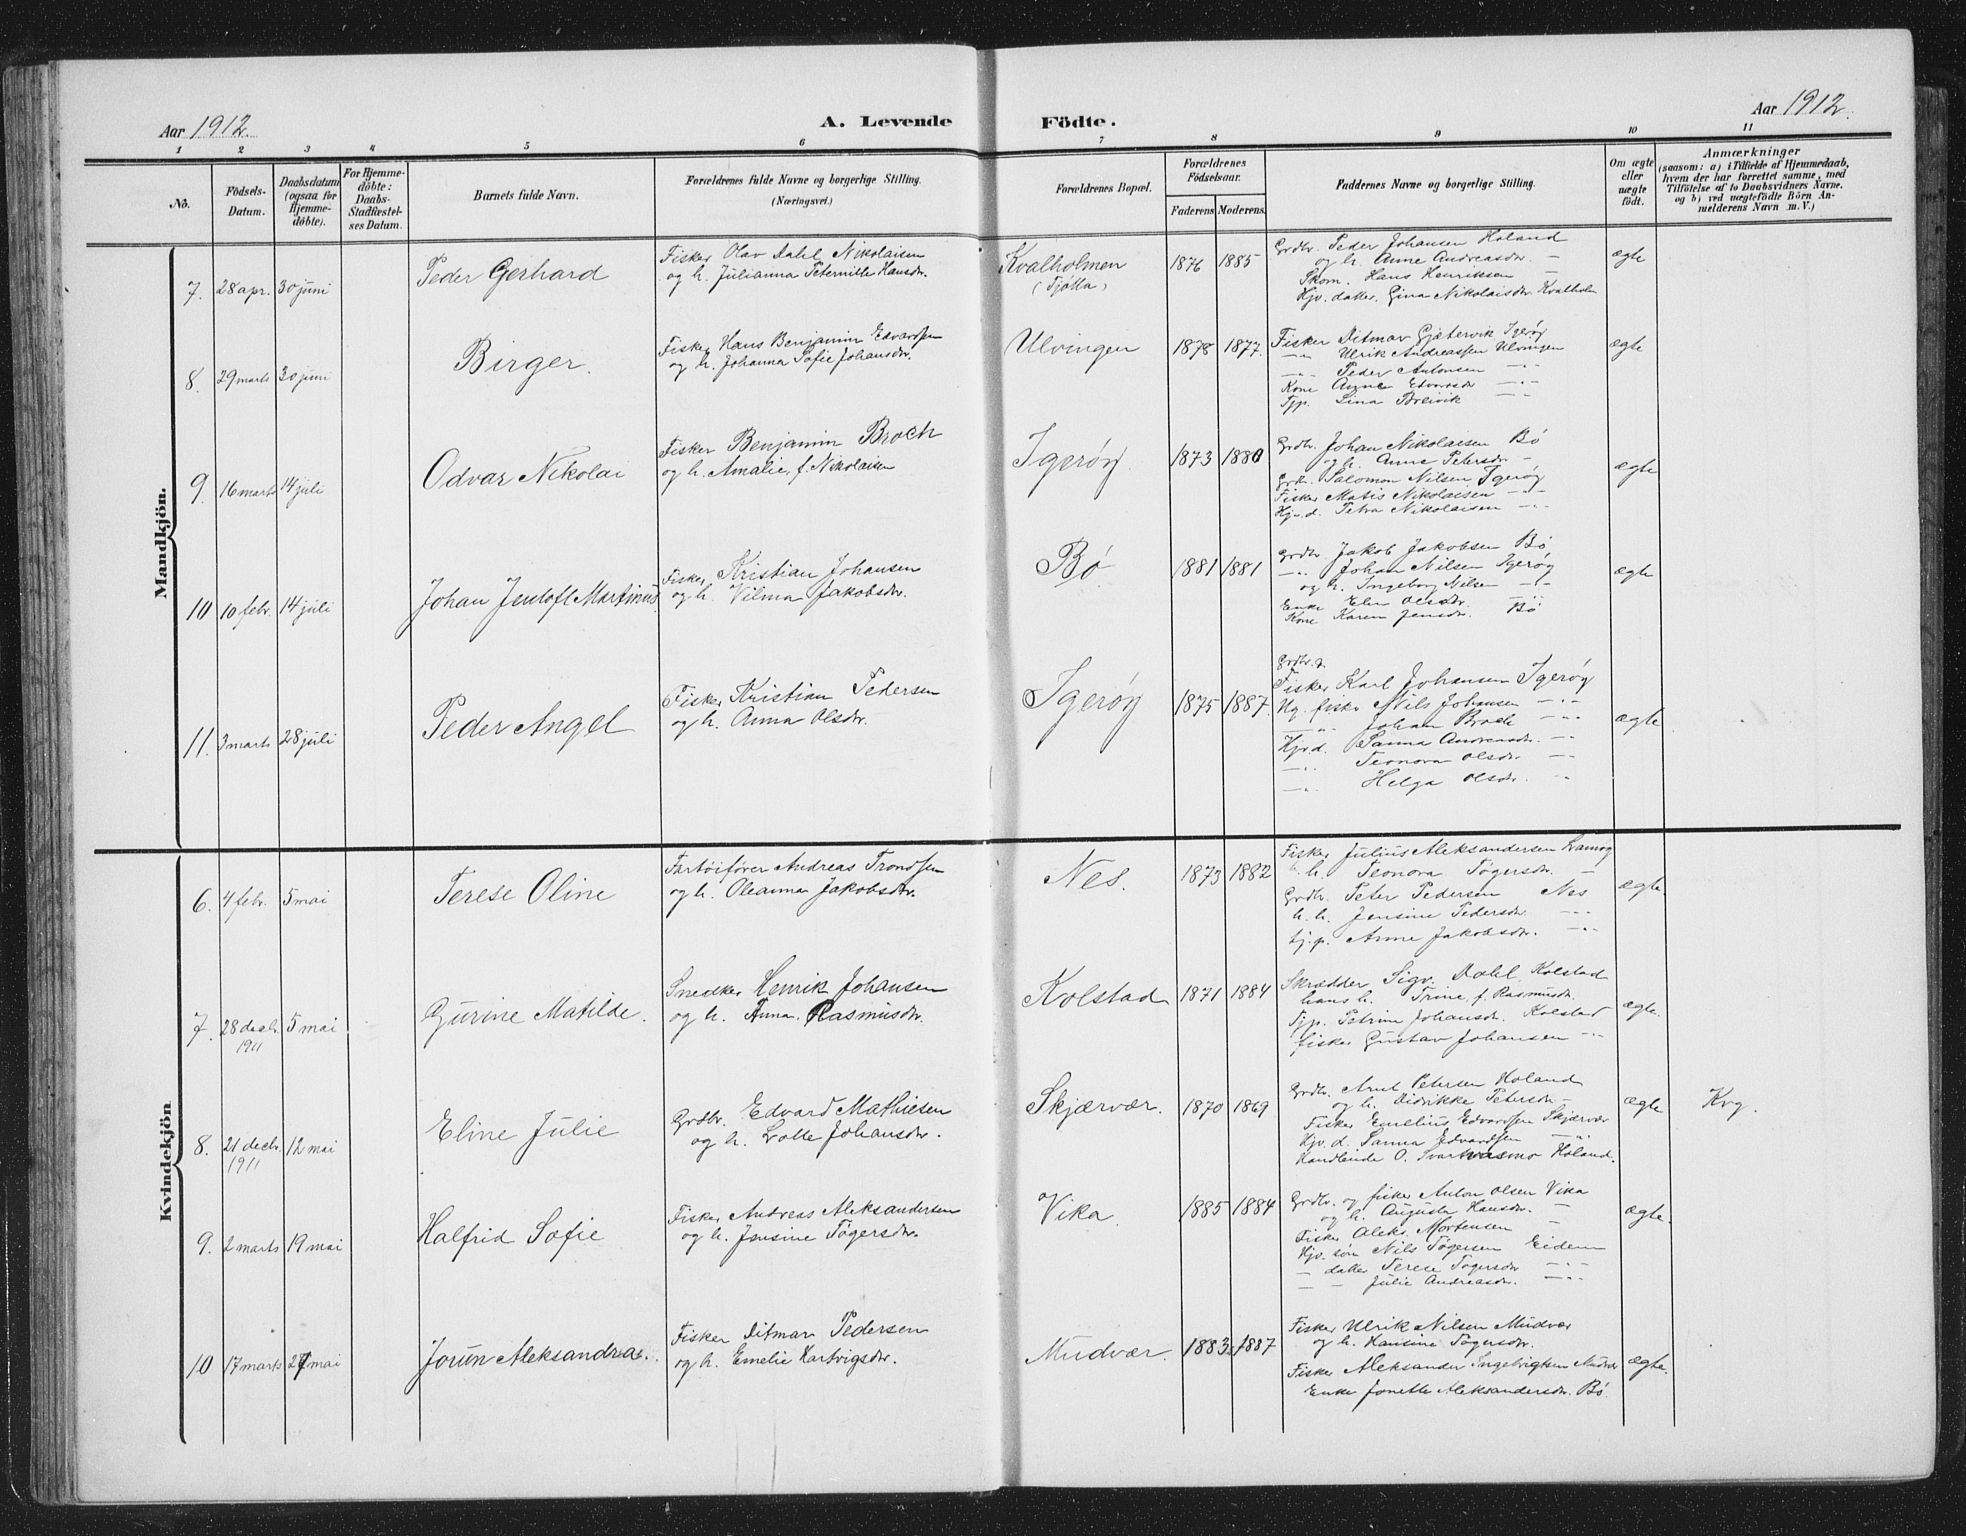 Aar 1912. A. Levende Födte. Aar 1912.
1 2 3 4 5 6 7 8 9 10 11
No. Födsels-Datum. Daabsdatum (ogsaa for Hjemmedöbte). For Hjemmedöbte: Daabs-Stadfæstelses Datum. Barnets fulde Navn. Forældrenes fulde Navne og borgerlige Stilling. (Næringsvei.) Forældrenes Bopæl. Forældrenes Födselsaar. Faderens Moderens. Faddernes Navne og borgerlige Stilling. Om ægte eller uægte födt. Anmærkninger (saasom: a) i Tilfælde af Hjemmedaab, hvem der har forrettet samme, med Tilföielse af to Daabsvidners Navne. og b) ved uægtefödte Börn Anmelderens Navn m. V.)
Mandkjön.
7. 28 apr. 30 juni Peder Gerhard
Fisker Olav Dahl Nikolaisen
og h. Julianna Peternille Hansdr.
Kvalholmen
(Tjøtta)
1876 1885
Grdbr. Peder Johansen Holand
og h. Anne Andreasdr. —
Skom. Hans Henriksen —
Hjv. datter. Gina Nikolaisdr Kvalholm
ægte
8. 29 marts 30 juni Birger.
Fisker Hans Benjamin Edvardsen
og h. Johanna Sofie Johansdr.
Ulvingen 1878 1877.
Fisker Ditmar Gjætervik Igerøy
— Ulrik Andreassen Ulvingen
— Peder Antonsen —
Kone Anne Edvardsdr —
Tjp. Lina Breivik —
ægte
9. 16 marts 14 juli Odvar Nikolai
Fisker Benjamin Broch
og h. Amalie, f. Nikolaisen
Igerøy. 1873 1880
Grdbr. Johan Nikolaisen Bø
og h. Anne Petersdr —
Grdbr. Salomon Nilsen Igerøy
Fisker Matis Nikolaisen —
Hjv.d. Petra Nikolaisen —
ægte
10 10 febr. 14 juli Johan Jentoft Martinus
Fisker Kristian Johansen
og h. Vilma Jakobsdr.
Bø 1881 1881
Grdbr. Jakob Jakobsen Bø
— Johan Nilsen Igerøy
og h. Ingeborg Nilsen —
Enke Elen Olsdr. —
Kone Karen Jensdr. Bø
ægte
11. 3 marts 28 juli Peder Angel
Fisker Kristian Pedersen
og h. Anna Olsdr.
Igerøy 1875 1887.
Grdbr.
Fisker Karl Johansen Igerøy
Ug. fisker Nils Johansen —
— Johan Broch —
Hjv.d. Sanna Andreasdr. —
— Leonora Olsdr —
— Helga Olsdr. —
ægte
Kvindekjön
6. 4 febr. 5 mai Terese Oline
Fartöifører Andreas Trondsen
og h. Oleanna Jakobsdr.
Nes. 1873 1882
Fisker Julius Aleksandersen
h. h. Leonora Tøgersdr. —
Grdbr. Peter Pedersen Nes
h. h. Jensine Pedersdr. —
tj.p. Anne Jakobsdr. —
ægte.
7. 28 decbr. 1911 5 mai Gurine Matilde.
Snedker Henrik Johansen
og h. Anna Rasmusdr.
Kolstad 1871 1884
Skrædder Sigv. Dahl Kolstad
hans h. Trine f. Rasmusdr.
Tjp. Petrine Johansdr. Kolstad
fisker Gustav Johansen —
ægte.
8. 21 decbr. 1911 12 mai Eline Julie
Grdbr. Edvard Mathiesen
og h. Lotte Johansdr.
Skjærvær. 1870 1869
Grdbr. Arnt Petersen Holand
og h. Didrikke Petersdr —
Fisker Emelius Edvardsen Skjærvær
Hjv.d. Sanna Edvardsen —
Handlende O. Svartvasmo Holand.
ægte Kvg.
9. 2 marts 19 mai Halfrid Sofie
Fisker Andreas Aleksandersen
og h. Jensine Tøgersdr.
Vika. 1885 1884
Grdbr. og fisker Anton Olsen Vika
og h. Augusta Hansdr. —
Fisker Aleks. Mortensen —
Hjv. søn Nils Tøgersen Eidem
— datter Terese Tøgersdr —
— — Julie Andreasdr. —
ægte.
10 17 marts 27 mai Jorun Aleksandra.
Fisker Ditmar Pedersen
og h. Emelie Hartvigsdr.
Mudvær. 1883 1887
Fisker Ulrik Nilsen Mudvær
og h. Hansine Tøgersdr.
Fisker Aleksander Ingebrigtsen Mudvær
Enke Jonette Aleksandersdr. Bø.
ægte.